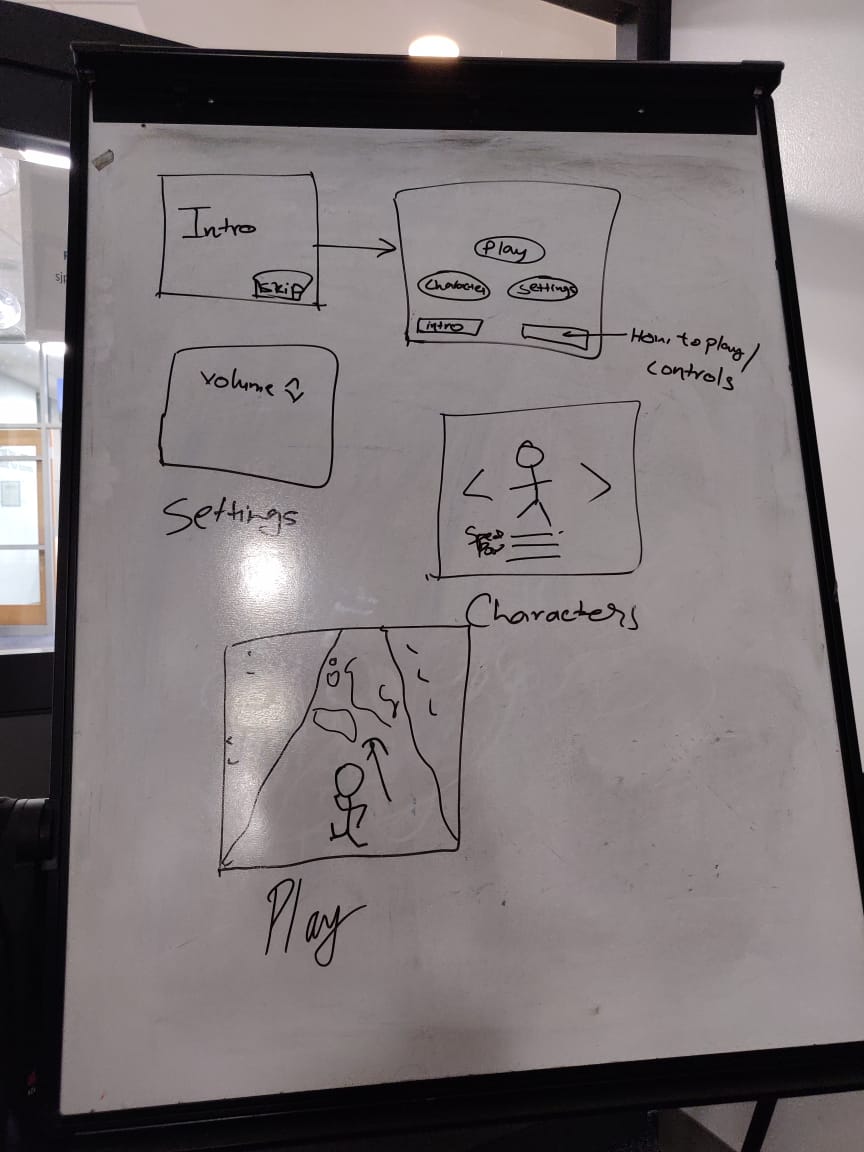 Intro
Skip
Play
Character
Settings
intro
How to play/
controls
Volume
Settings
Characters
Play